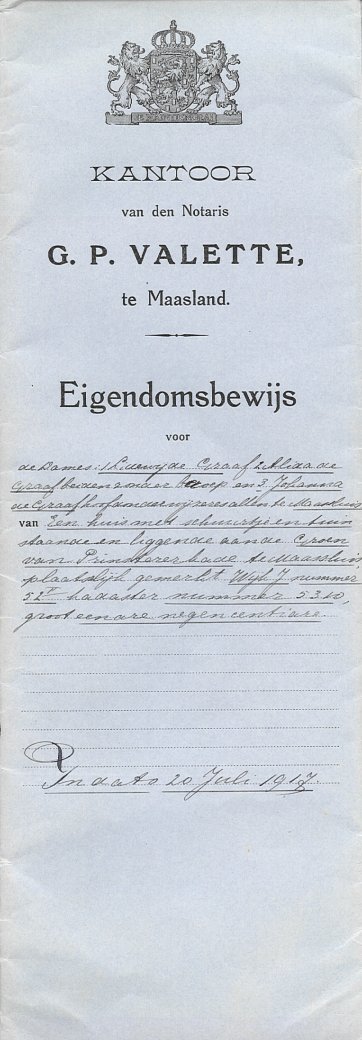 JE MAINTIENDRAI
KANTOOR
van den Notaris
G. P. VALETTE,
te Maasland.
Eigendomsbewijs
voor
de Dames: 1 Lidewij de Graaf 2 Alida de
Graaf beiden zonder beroep en 3. Johanna
de Graaf hoofdonderwijzeres allen te Maassluis
van Een huis met schuurtje en tuin
staande en liggende aan de Groen
van Prinstererkade te Maassluis
plaatslijk gemerkt Wijk J nummer
52 kadaster nummer 5310,
groot eenare negencentiare.
In dato 20 Juli 1917.